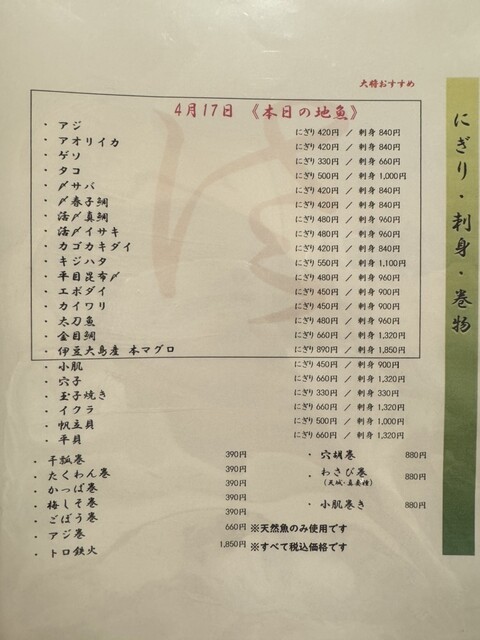 大将おすすめ
4月17日 《本日の地魚》
・ アジ にぎり 420円 / 刺身 840円
・ アオリイカ にぎり 420円 / 刺身 840円
・ ゲソ にぎり 330円 / 刺身 660円
・ タコ にぎり 500円 / 刺身 1,000円
・ 〆サバ にぎり 420円 / 刺身 840円
・ 〆春子鯛 にぎり 420円 / 刺身 840円
・ 活〆真鯛 にぎり 480円 / 刺身 960円
・ 活〆イサキ にぎり 480円 / 刺身 960円
・ カゴカキダイ にぎり 420円 / 刺身 840円
・ キジハタ にぎり 550円 / 刺身 1,100円
・ 平目昆布〆 にぎり 480円 / 刺身 960円
・ エボダイ にぎり 450円 / 刺身 900円
・ カイワリ にぎり 450円 / 刺身 900円
・ 太刀魚 にぎり 480円 / 刺身 960円
・ 金目鯛 にぎり 660円 / 刺身 1,320円
・ 伊豆大島産 本マグロ にぎり 890円 / 刺身 1,850円
・ 小肌 にぎり 450円 / 刺身 900円
・ 穴子 にぎり 660円 / 刺身 1,320円
・ 玉子焼き にぎり 330円 / 刺身 330円
・ イクラ にぎり 660円 / 刺身 1,320円
・ 帆立貝 にぎり 500円 / 刺身 1,000円
・ 平貝 にぎり 660円 / 刺身 1,320円
・ 干瓢巻 390円
・ たくわん巻 390円
・ かっぱ巻 390円
・ 梅しそ巻 390円
・ ごぼう巻 390円
・ アジ巻 660円
・ トロ鉄火 1,850円
・ 穴胡巻 880円
・ わさび巻 880円
(天城・真妻種)
・ 小肌巻き 880円
※天然魚のみ使用です
※すべて税込価格です
にぎり・刺身・巻物